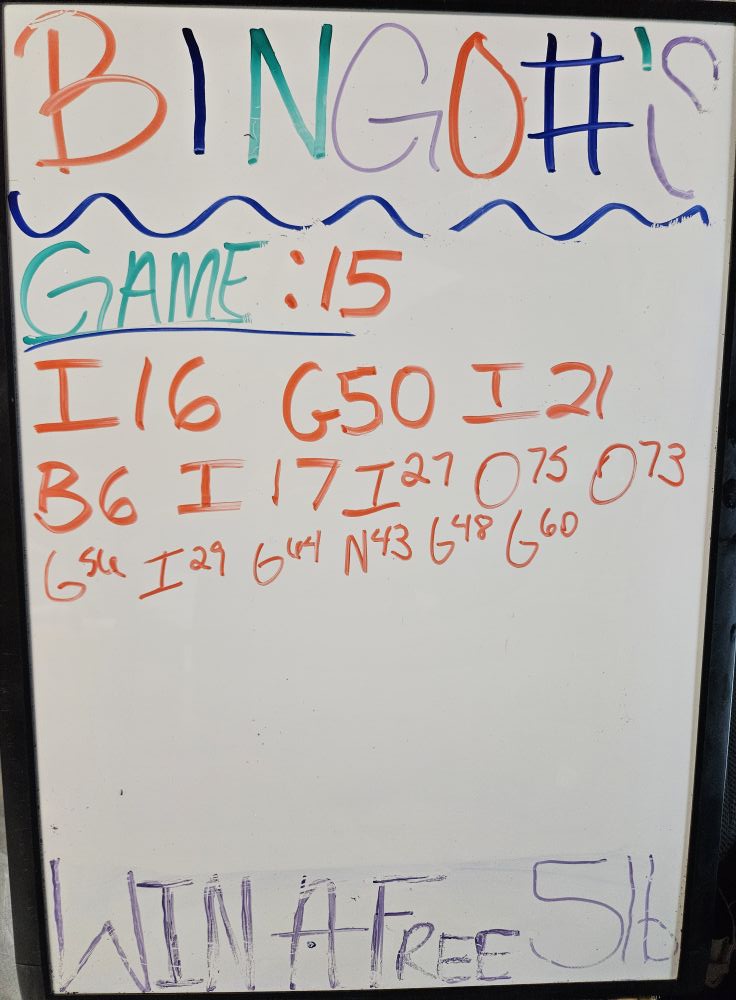 BINGO#'S
GAME:15
I16 G50 I21
B6 I17 I27 O75 O73
G56 I29 G44 N43 G48 G60
WIN A FREE 5lb